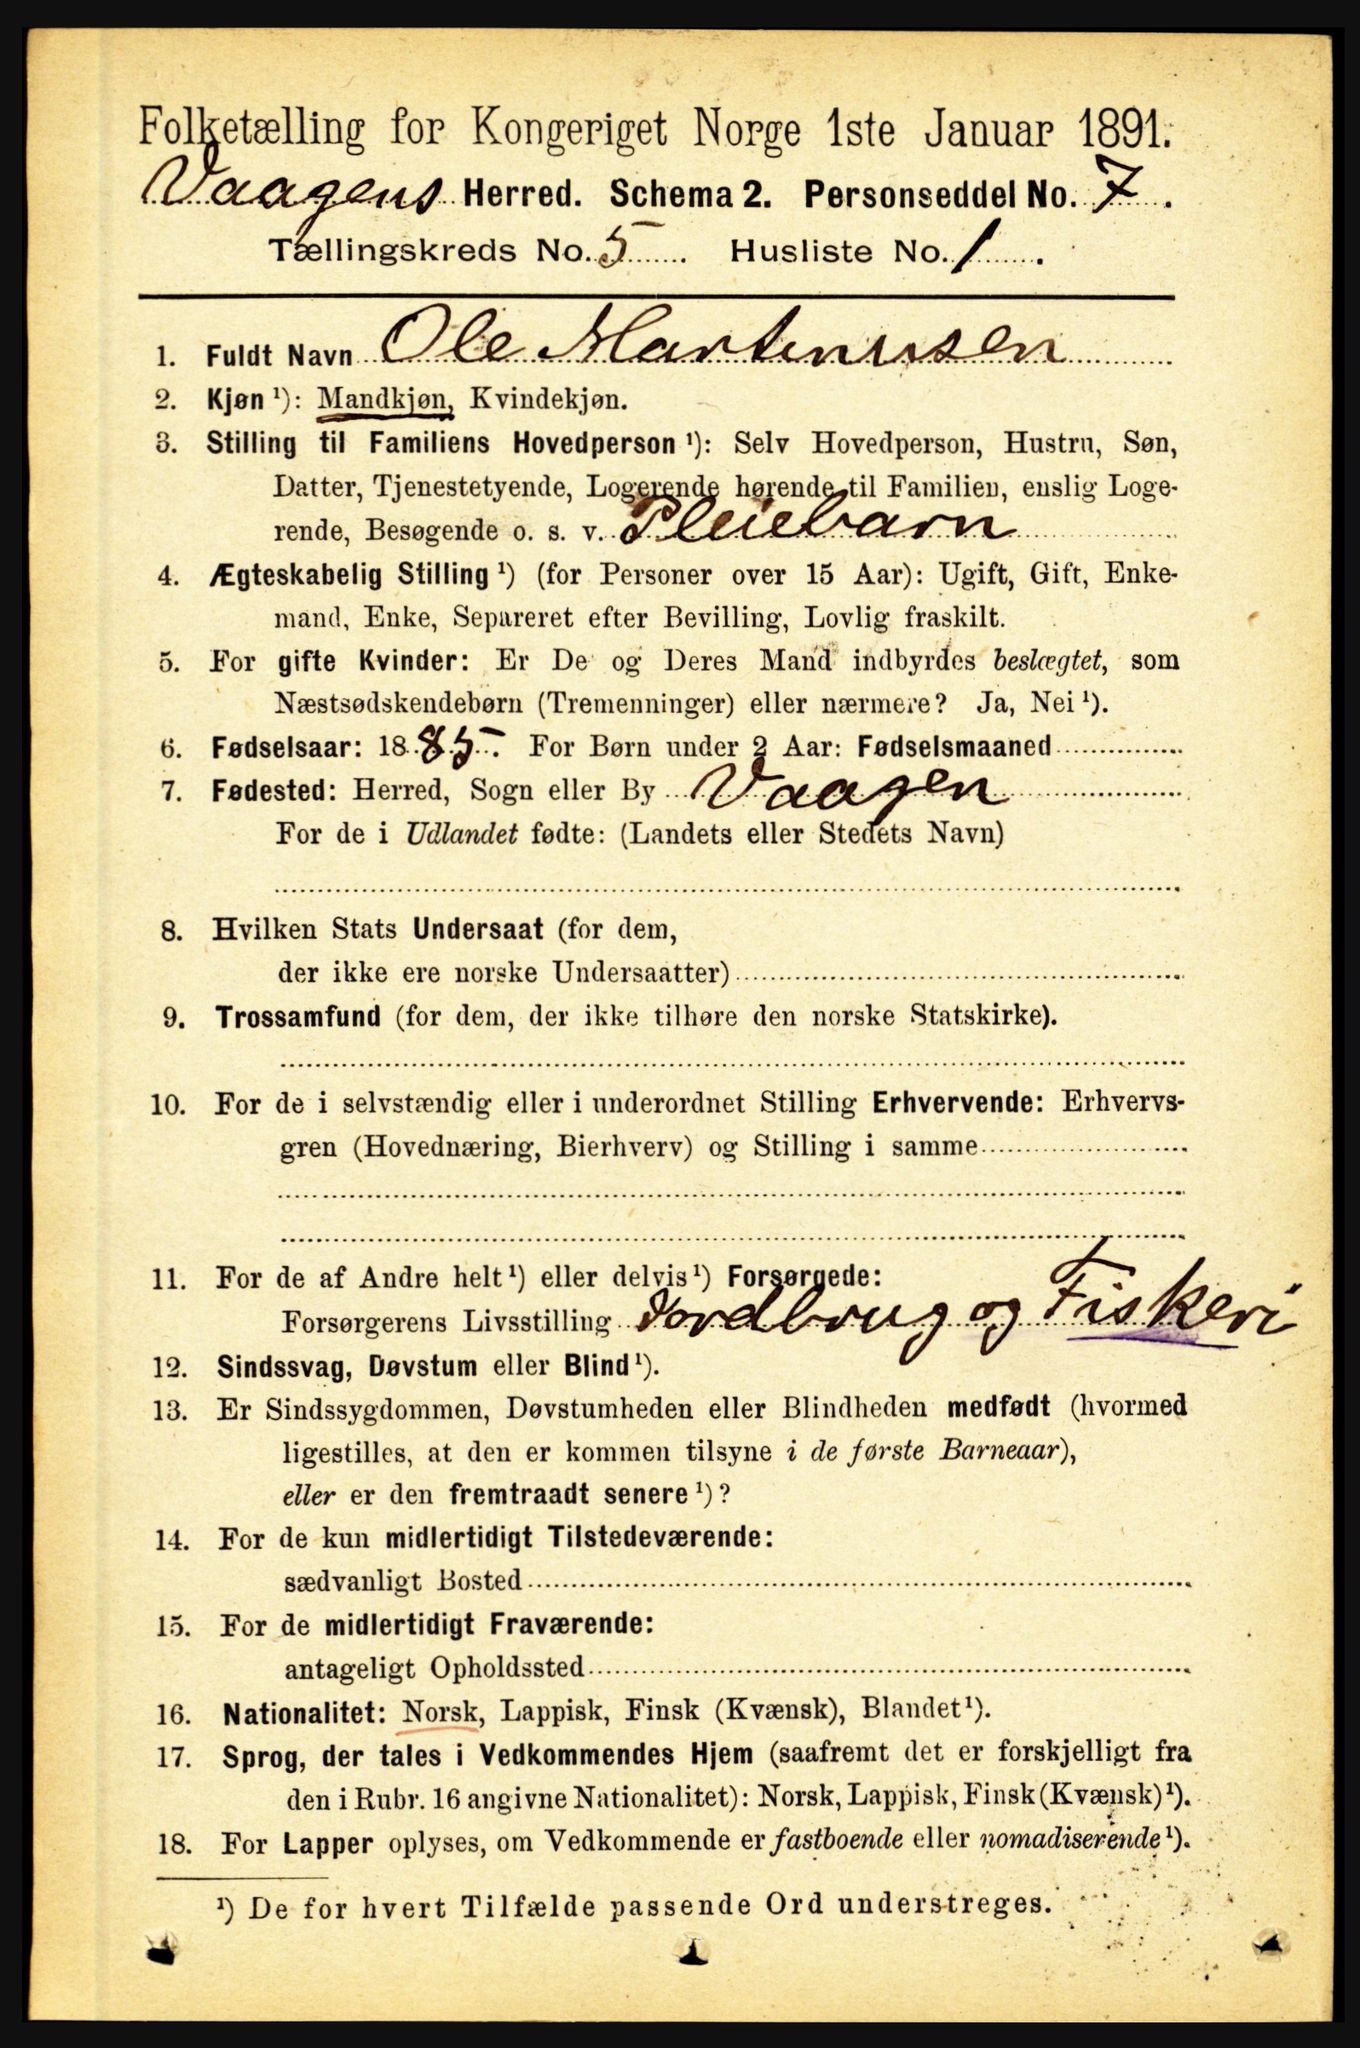 Folketælling for Kongeriget Norge 1ste Januar 1891.
Vaagens Herred. Schema 2. Personseddel No. 7.
Tællingskreds No. 5. Husliste No. 1.
1. Fuldt Navn Ole Martinusen
2. Kjøn ¹): Mandkjøn, Kvindekjøn.
3. Stilling til Familiens Hovedperson ¹): Selv Hovedperson, Hustru, Søn,
Datter, Tjenestetyende, Logerende hørende til Familien, enslig Loge-
rende, Besøgende o. s. v. Pleiebarn
4. Ægteskabelig Stilling ¹) (for Personer over 15 Aar): Ugift, Gift, Enke-
mand, Enke, Separeret efter Bevilling, Lovlig fraskilt.
5. For gifte Kvinder: Er De og Deres Mand indbyrdes beslægtet, som
Næstsødskendebørn (Tremenninger) eller nærmere? Ja, Nei ¹).
6. Fødselsaar: 1885. For Børn under 2 Aar: Fødselsmaaned
7. Fødested: Herred, Sogn eller By Vaagen
For de i Udlandet fødte: (Landets eller Stedets Navn)
8. Hvilken Stats Undersaat (for dem,
der ikke ere norske Undersaatter)
9. Trossamfund (for dem, der ikke tilhøre den norske Statskirke).
10. For de i selvstændig eller i underordnet Stilling Erhvervende: Erhvervs-
gren (Hovednæring, Bierhverv) og Stilling i samme
11. For de af Andre helt ¹) eller delvis ¹) Forsørgede:
Forsørgerens Livsstilling Jordbrug og Fiskeri
12. Sindssvag, Døvstum eller Blind ¹).
13. Er Sindssygdommen, Døvstumheden eller Blindheden medfødt (hvormed
ligestilles, at den er kommen tilsyne i de første Barneaar),
eller er den fremtraadt senere ¹)?
14. For de kun midlertidigt Tilstedeværende:
sædvanligt Bosted
15. For de midlertidigt Fraværende:
antageligt Opholdssted
16. Nationalitet: Norsk, Lappisk, Finsk (Kvænsk), Blandet ¹).
17. Sprog, der tales i Vedkommendes Hjem (saafremt det er forskjelligt fra
den i Rubr. 16 angivne Nationalitet): Norsk, Lappisk, Finsk (Kvænsk) ¹).
18. For Lapper oplyses, om Vedkommende er fastboende eller nomadiserende ¹).
¹) De for hvert Tilfælde passende Ord understreges.